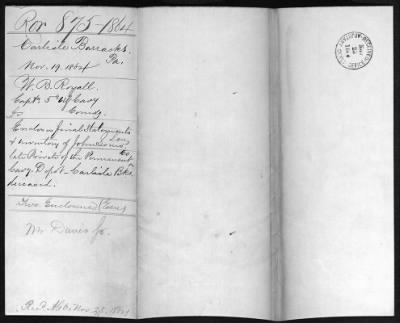 Ror 875-1864
Carlisle Barracks,
Pa.
Nov. 19. 1864
W. B. Royall.
Capt. 5" Cavy
Comdg.
Encloses final Statements
& inventory of John
late Private of the Permanent
Co
Cavy. Depot - Carlisle Bks
deceased.
Two Enclosures
Mr Davis Jr.
Recd. Nov. 25. 1864